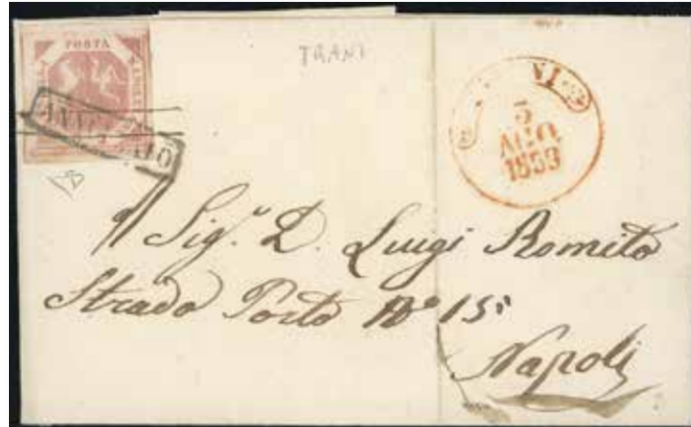 POSTA
TRANI
5
AGO
1859
ANNULLATO
Sig.r D. Luigi Romito
Strada Porto No 15
Napoli